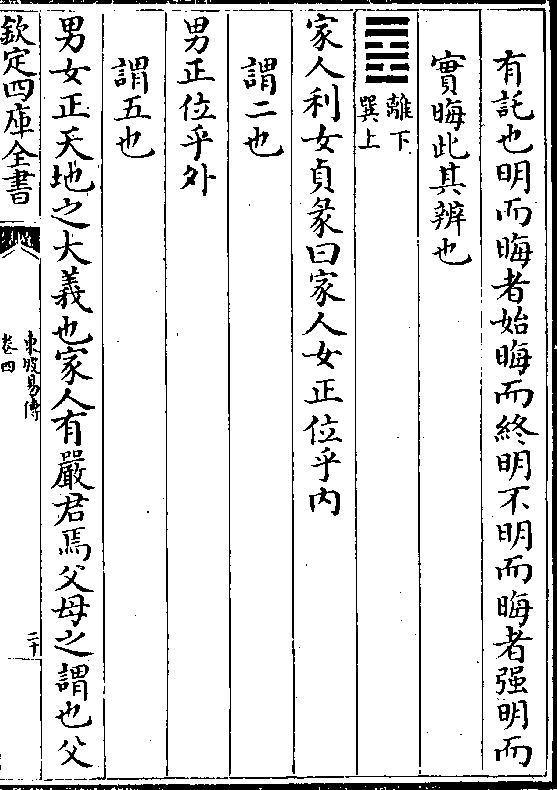 有託也明而晦者始晦而終明不明而晦者强明而
實晦此其辨也
離下
巽上
家人利女貞彖曰家人女正位乎內
謂二也
男正位乎外
謂五也
男女正天地之大義也家人有嚴君焉父母之謂也父
欽定四庫全書
東坡易傳
卷四
二十